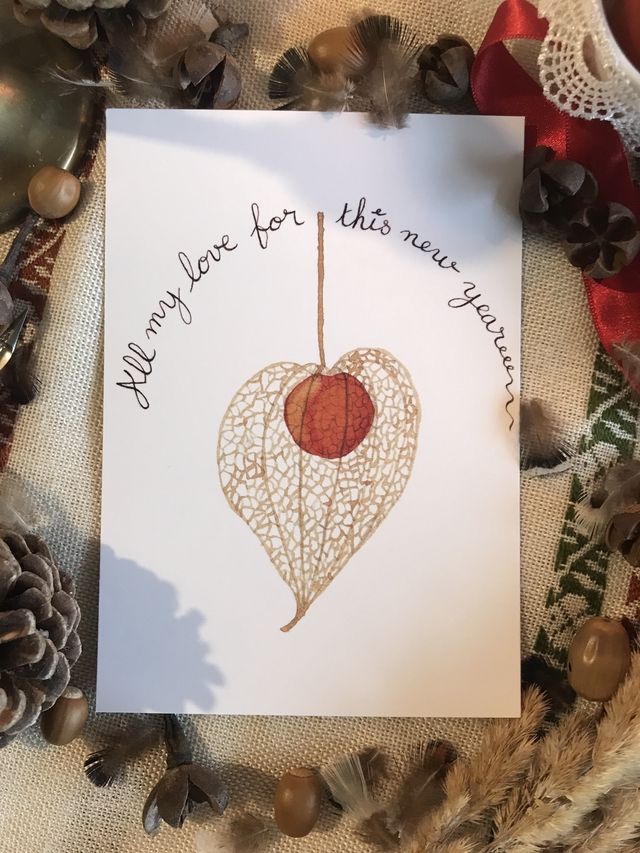 All my love for this new yeareeen